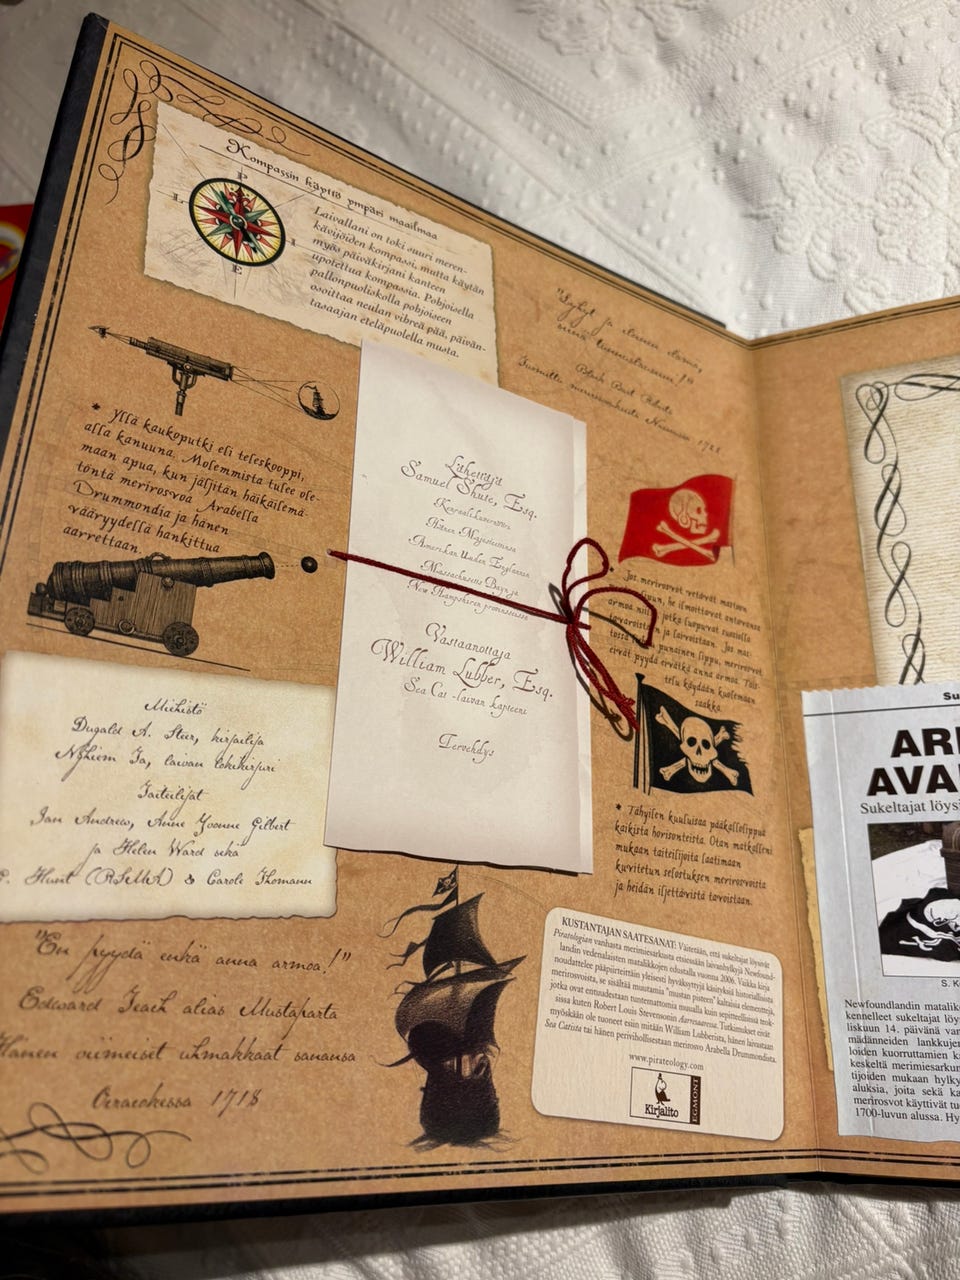 Kompassin käyttö ympäri maailmaa
P
L
I
E
Laivallani on toki suuri meren-
kävijöiden kompassi, mutta käytän
myös päiväkirjani kanteen
upotettua kompassia. Pohjoisella
pallonpuoliskolla pohjoiseen
osoittaa neulan vihreä pää, päivän-
tasaajan eteläpuolella musta.
* Yllä kaukoputki eli teleskooppi,
alla kanuuna. Molemmista tulee ole-
maan apua, kun jäljitän häikäilemä-
töntä merirosvoa Arabella
Drummondia ja hänen
vääryydellä hankittua
aarrettaan.
Miehistö
Dugald A. Steer, kirjailija
Nghiem Ta, laivan lokikirjuri
Taiteilijat
Ian Andrew, Anne Yvonne Gilbert
ja Helen Ward sekä
Hunt (RSMA) & Carole Thomann
"En pyydä enkä anna armoa!"
Edward Teach alias Mustaparta
Hänen viimeiset uhmakkaat sanansa
Ocracokessa 1718
Lähettäjä
Samuel Shute, Esq.
Kenraalikuvernööri
Hänen Majesteettinsa
Amerikan Uuden Englannin
Massachusetts Bayn ja
New Hampshiren provinsseissa
Vastaanottaja
William Lubber, Esq.
Sea Cat -laivan kapteeni
Tervehdys
"Lyhyt ja iloinen elämä,
Black Bart Roberts
1721
Jos merirosvot vetävät mastoon
lipun, he ilmoittavat antavansa
armoa niille, jotka luopuvat suosiolla
tavaroistaan ja laivoistaan. Jos mas-
tossa punainen lippu, merirosvot
eivät pyydä eivätkä anna armoa. Tais-
telu käydään kuolemaan
saakka.
* Tähyilen kuuluisaa pääkallolippua
kaikista horisonteista. Otan matkalleni
mukaan taiteilijoita laatimaan
kuvitetun selostuksen merirosvoista
ja heidän iljettävistä tavoistaan.
KUSTANTAJAN SAATESANAT: Väitetään, että sukeltajat löysivät
Piratologian vanhasta merimiesarkusta etsiessään laivanhylkyjä Newfound-
landin vedenalaisten matalikkojen edustalla vuonna 2006. Vaikka kirja
noudattelee pääpiirteittäin yleisesti hyväksyttyjä käsityksiä historiallisista
merirosvoista, se sisältää muutamia "mustan pisteen" kaltaisia elementtejä,
jotka ovat entuudestaan tuntemattomia muualla kuin sepitteellisissä teok-
sissa kuten Robert Louis Stevensonin Aarresaaressa. Tutkimukset eivät
myöskään ole tuoneet esiin mitään William Lubberista, hänen laivastaan
Sea Catista tai hänen perivihollisestaan merirosvo Arabella Drummondista.
www.pirateology.com
Kirjalito
EGMONT
Su
AR
AVA
Sukeltajat löysi
S. K
Newfoundlandin mataliko
kennelleet sukeltajat löy
liskuun 14. päivänä van
mädänneiden lankkujen
loiden kuorruttamien k
keskeltä merimiesarkun
tijoiden mukaan hylky
aluksia, joita sekä ka
merirosvot käyttivät tu
1700-luvun alussa. Hy